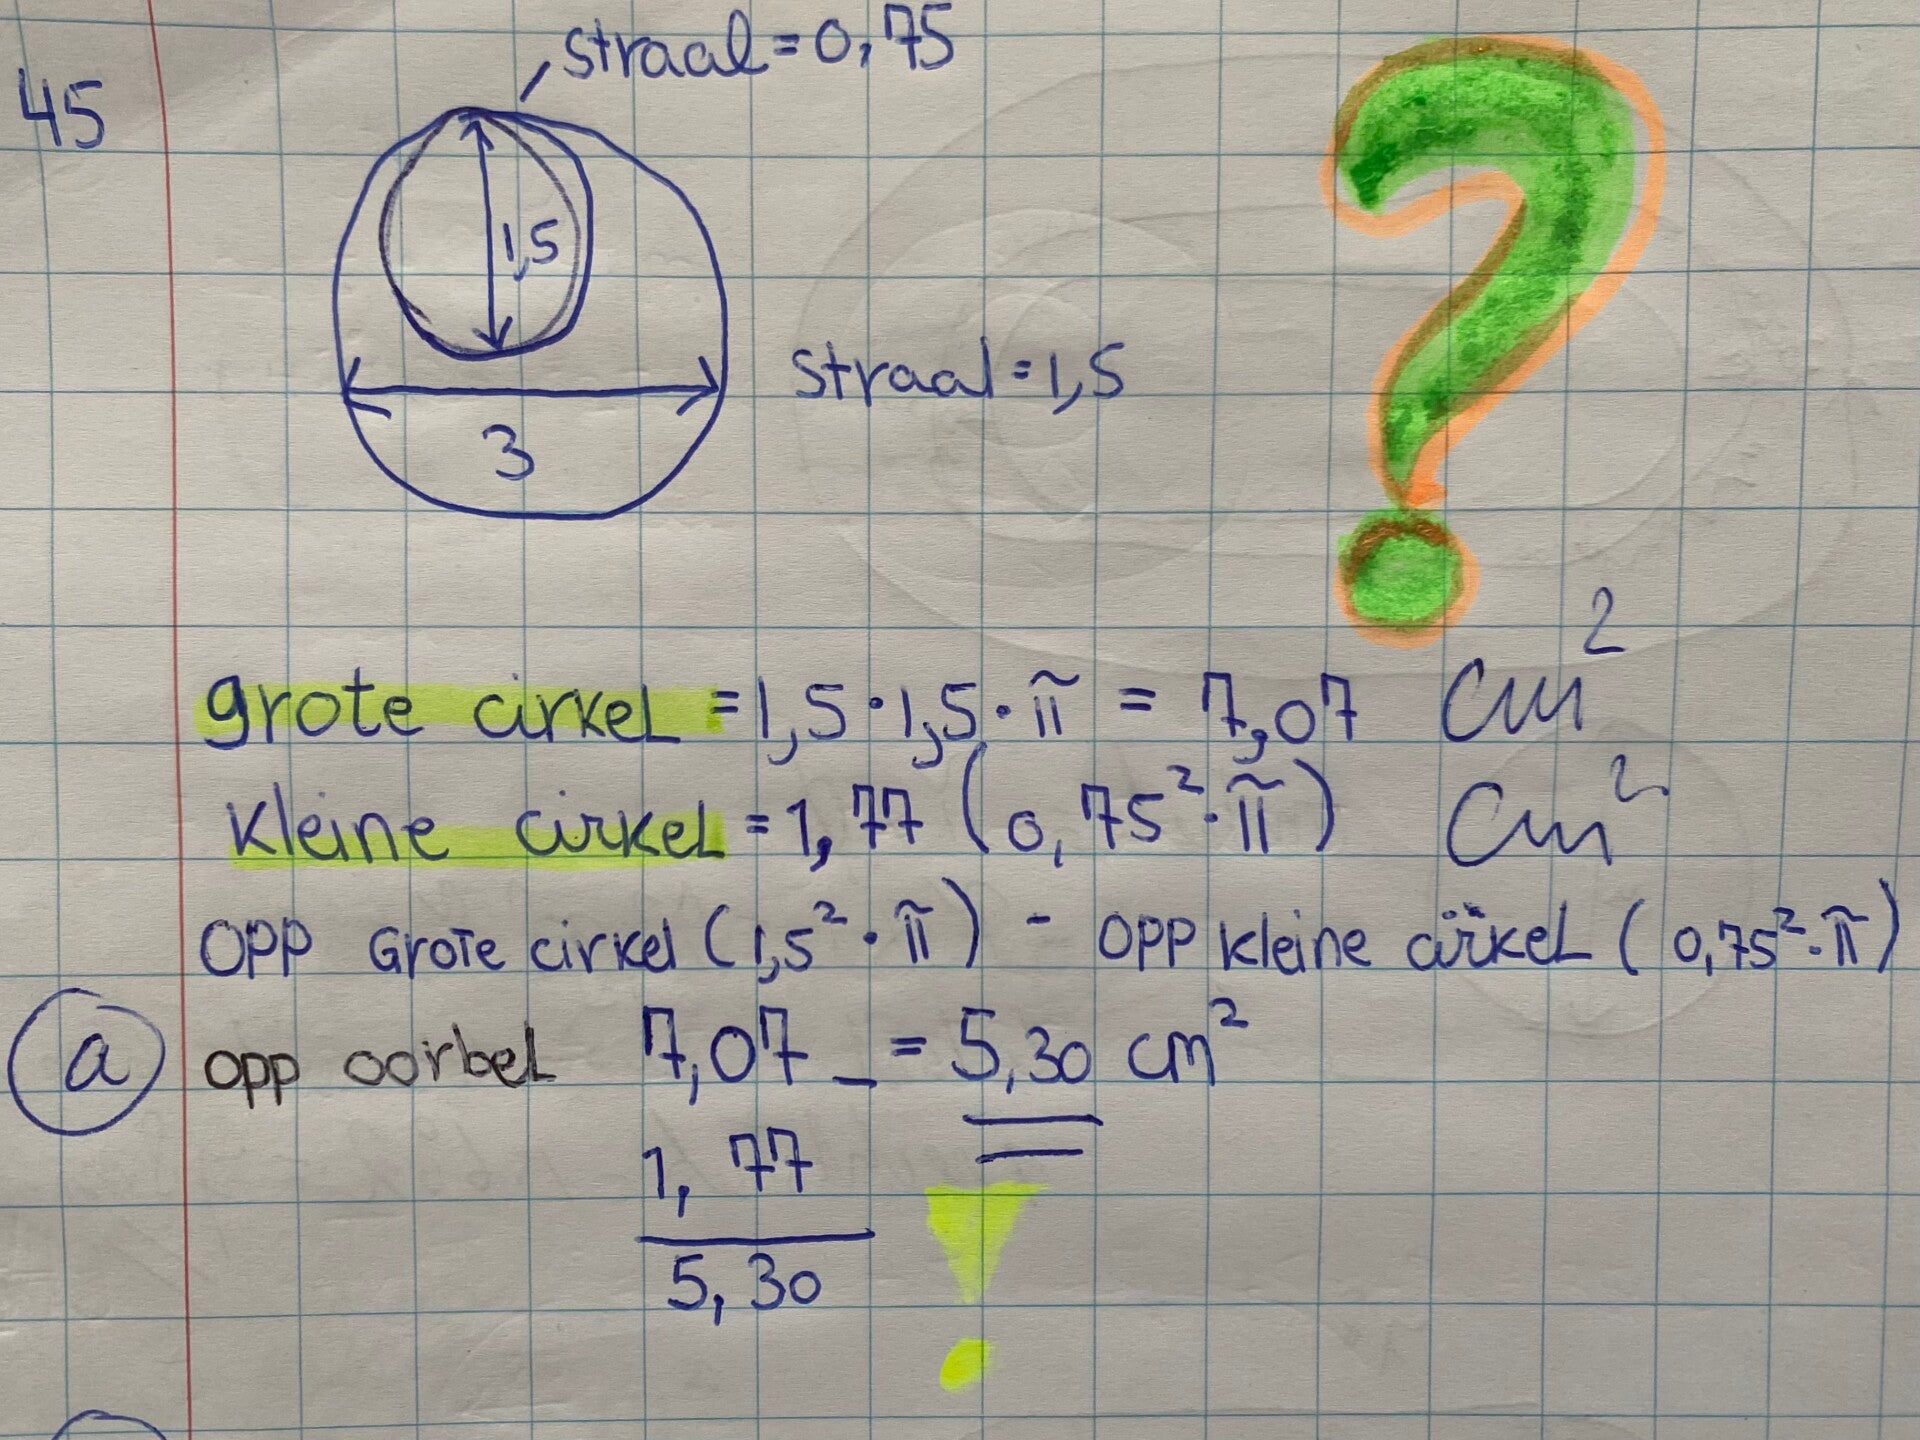 straal = 0,75
45
1,5
straal = 1,5
3
?
grote cirkel = 1,5 · 1,5 · π = 7,07 cm²
kleine cirkel = 1,77 (0,75² · π) cm²
opp Grote cirkel (1,5² · π) - opp kleine cirkel (0,75² · π)
a opp oorbel 7,07 - = 5,30 cm²
1,77
5,30
!